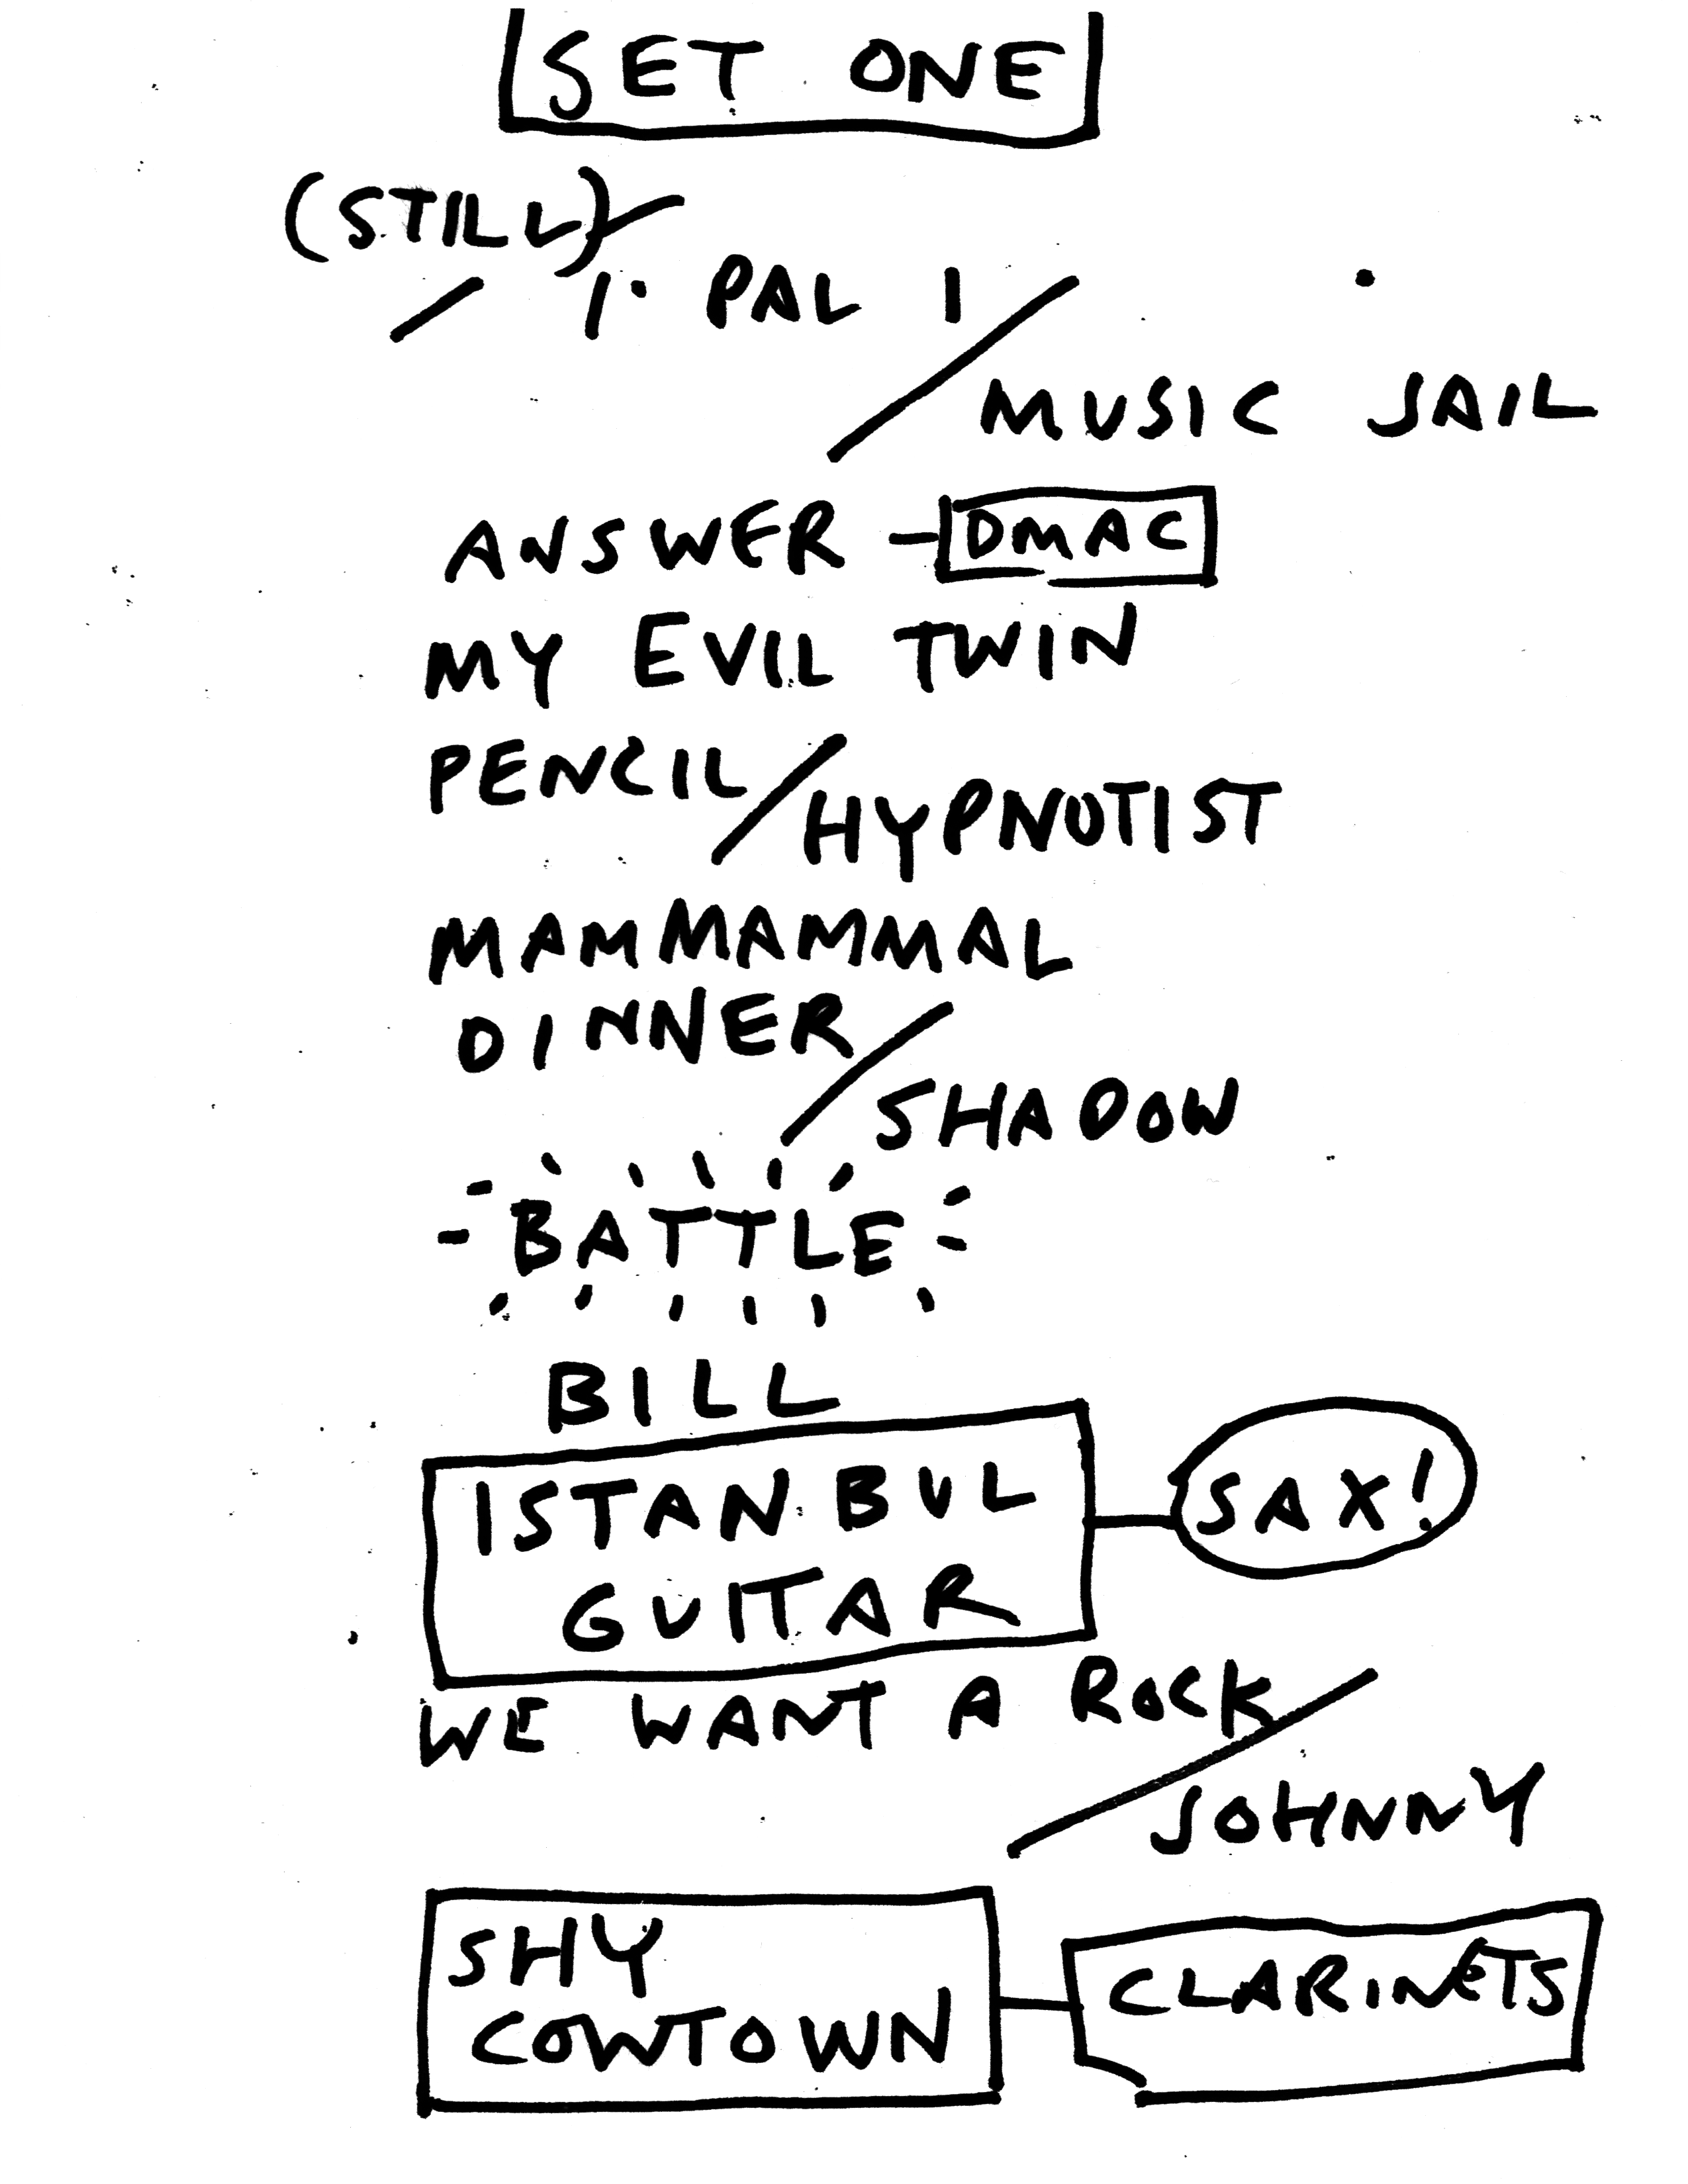 SET ONE
(STILL)
/ 1. PAL 1 /
MUSIC JAIL
ANSWER - DMAC
MY EVIL TWIN
PENCIL /
HYPNOTIST
MAMMAMMAL
DINNER /
SHADOW
BATTLE
BILL
ISTANBUL
SAX!
GUITAR
WE WANT A ROCK /
JOHNNY
SHY
CLARINETS
COWTOWN